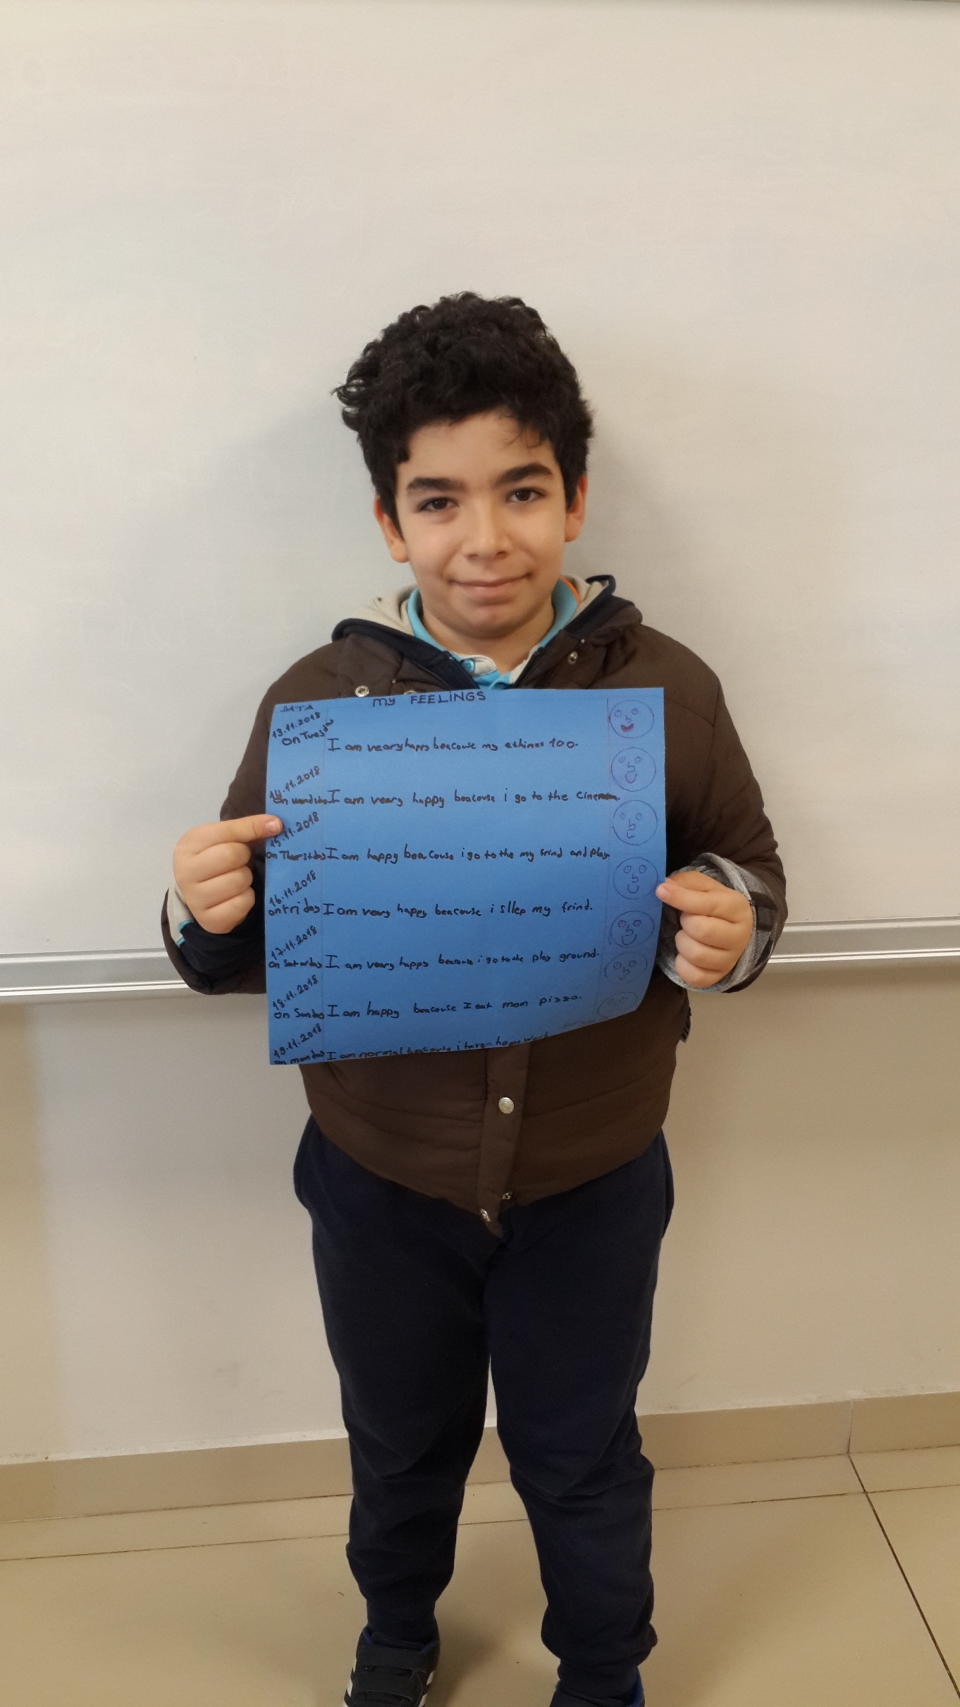 DATA MY FEELINGS
13.11.2018
on Tuesday I am veary happy beacouse my ethines 100.
14.11.2018
on wendsday I am veary happy beacouse i go to the cinemam.
15.11.2018
on Thersthday I am happy beacouse i go to the my frind and play
16.11.2018
on friday I am veary happy beacouse i sllep my frind.
17.11.2018
on Saturday I am veary happy beacouse i go to the play ground.
18.11.2018
on Sunday I am happy beacouse I eat mom pizza.
19.11.2018
on monday I am normal beacouse i homework